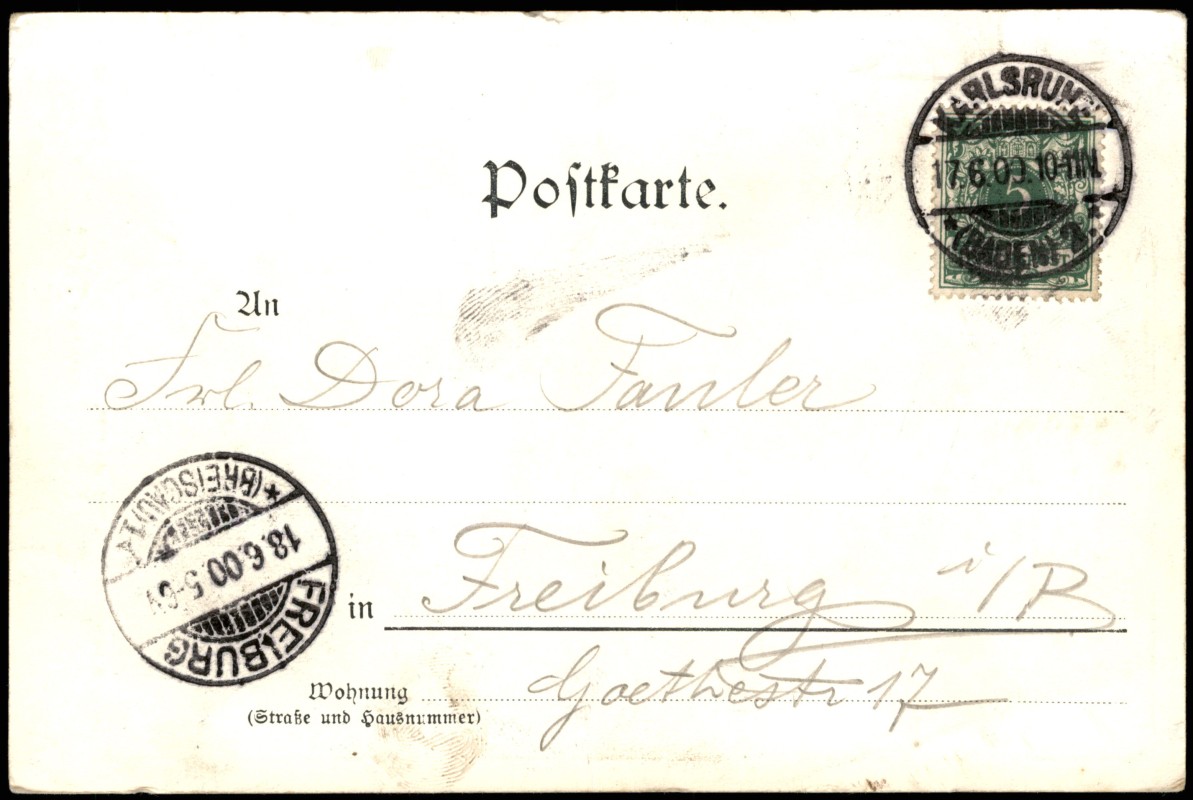 KARLSRUHE
17.6.00.10-11N.
*(BADEN)*2.
5
Postkarte.
An
Frl. Dora Fauler
in Freiburg i/B
Wohnung Goethestr 17
(Straße und Hausnummer)
*(BREISGAU)1.
18.6.00.5-6
FREIBURG